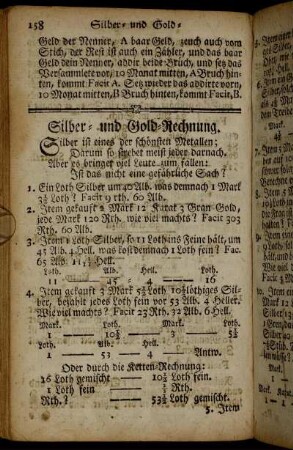 158 Silber- und Gold-
Geld der Nenner, A baar Geld, zeuch auch vom
Stich, der Rest ist auch ein Zähler, und das baar
Geld dein Nenner, addir beide Bruch, und setz das
Versammlete vor, 10 Monat mitten, A Bruch hin-
ten, kommt Facit A. Setz wieder das addirte vorn,
10 Monat mitten, B Bruch hinten, kommt Facit, B.
Silber- und Gold-Rechnung.
Silber ist eines der schönsten Metallen;
Darum so strebet meist jeder darnach.
Aber es bringet viel Leute zum fallen:
Ist das nicht eine gefährliche Sach?
1. Ein Loth Silber um 40 Alb. was demnach 1 Mark
Loth? Facit 9 rth. 60 Alb.
2. Item gekauft 2 Mark 12 Karat 3 Gran Gold,
jede Mark 120 Rth. wie viel machts? Facit 303
Rth. 60 Alb.
3. Item 1 Loth Silber, so 11 Lothins Feine hält, um
45 Alb. 4 Hell. was kost demnach 1 Loth fein? Fac.
65 Alb. Hell.
Loth. Alb. Hell. Loth.
11 — 45 — 4 — 16
4. Item gekauft 3 Mark 5½ Loth 10½löthiges Sil-
ber, bezahlt jedes Loth fein vor 53 Alb. 4 Heller.
Wie viel machts? Facit 23 Rth. 32 Alb. 6 Hell.
Mark. Loth. Mark. Loth.
1 — 10½ — 3 — 5½
Loth. Alb. Hell.
1 — 53 — 4 — Antw.
Oder durch die Ketten-Rechnung:
16 Loth gemischt — 10½ Loth fein.
1 Loth fein — Rth.
Rth. ? — 53½ Loth gemischt.
5. Item